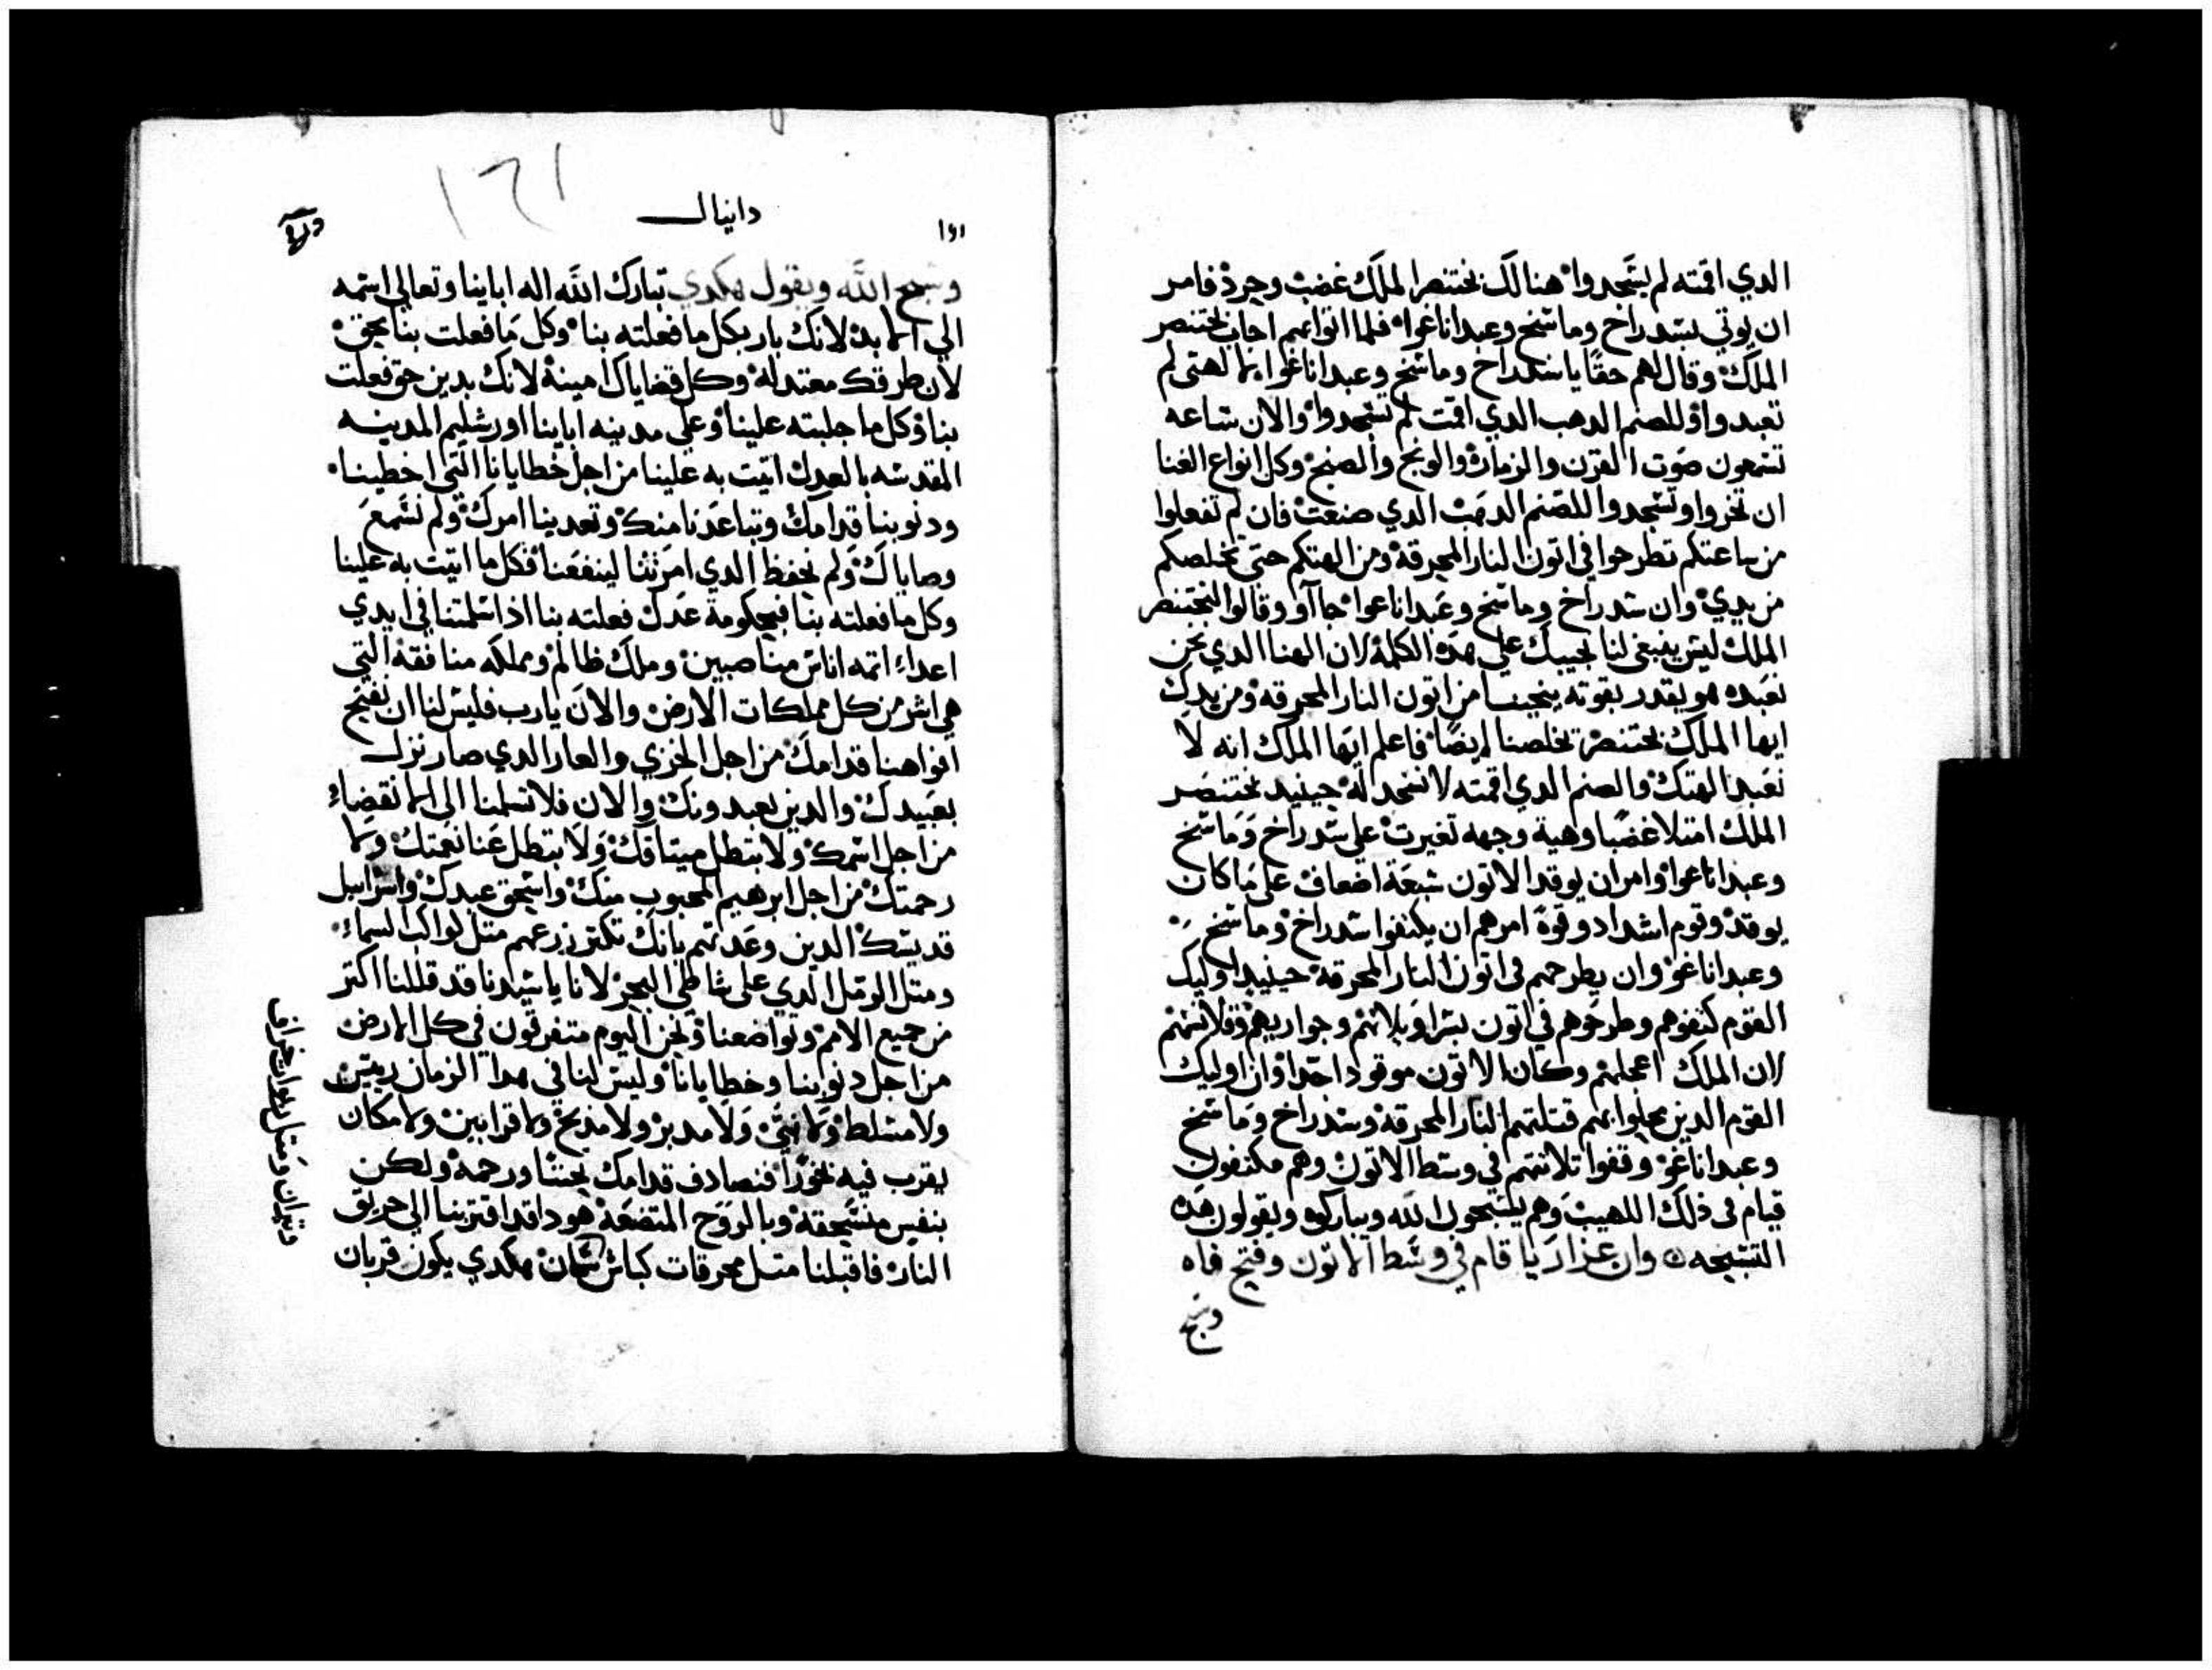 الدي اقمته لم يسجدوا هنالك بختنصر الملك غضب وحرد فامر
ان يوتي بسدراخ وماسخ وعبداناغوا فلما اتوا بهم اجاب بختنصر
الملك وقال لهم حقا يا سدراخ وماسخ وعبداناغوا بالهتي لم
تعبدوا وللصنم الدهب الدي اقمت لم تسجدوا والان ساعه
تسمعون صوت القرن والزمارة والونج والصنج وكل انواع الغنا
ان تخروا وتسجدوا للصنم الدهب الدي صنعت فان لم تفعلوا
من ساعتكم تطرحوا في اتون النار المحرقة ومن الهتكم حتي تخلصكم
من يدي وان سدراخ وماسخ وعبداناعوا جااو وقالوا لبختنصر
الملك ليس ينبغي لنا نجيبك علي هده الكلمة لان الهنا الدي نحن
نعبده هو يقدر بقوته ينجينا من اتون النار المحرقه ومن يدك
ايها الملك بختنصر يخلصنا ايضا فاعلم ايها الملك انه لا
نعبد الهتك والصنم الدي اقمته لا نسجد له حينيد بختنصر
الملك امتلا غضبا وهية وجهه تغيرت علي سدراخ وماسخ
وعبداناعوا وامر ان يوقد الاتون سبعة اضعاف علي ما كان
يوقد وقوم اشداد وقوة امرهم ان يكتفوا سدراخ وماسخ
وعبداناغو وان يطرحهم في اتون النار المحرقة حينيد اوليك
القوم كتفوهم وطرحوهم في اتون بسراويلاتهم وجواربهم وقلانسهم
لان الملك اعجلهم وكان الاتون موقودا جدا وان اوليك
القوم الدين محلوا بهم قتلتهم النار المحرقة وسدراخ وماسخ
وعبداناغو وقفوا تلاتتهم في وسط الاتون وهم مكتفون
قيام في ذلك اللهيب وهم يسبحون الله ويباركوه ويقولون هده
التسبحه وان عزاريا قام في وسط الاتون وفتح فاه
وسبح
دانيال
وسبح الله ويقول هكدي تبارك الله اله اباينا وتعالي اسمه
الي الابد لانك بار بكل ما فعلته بنا وكل ما فعلت بنا بحق
لان طرقك معتدلة وكل قضاياك امينة لانك بدين حق فعلت
بنا وكل ما جلبته علينا وعلي مدينه اباينا اورشليم المدينه
المقدسه بالعدل اتيت به علينا من اجل خطايانا التي اخطينا
ودنوبنا قدامك وتباعدنا منك وتعدينا امرك ولم نسمع
وصاياك ولم نحفظ الدي امرتنا لينفعنا فكل ما اتيت به علينا
وكل ما فعلته بنا فبحكومة عدل فعلته بنا اذ اسلمتنا في ايدي
اعداء اتمه اناس مناصبين وملك ظالم ومملكه منافقة التي
هي اشر من كل مملكات الارض والان يارب فليس لنا ان نفتح
افواهنا قدامك من اجل الخزي والعار الدي صار نزل
بعبيدك والدين يعبدونك والان فلا تسلمنا الي الانقضاء
من اجل اسمك ولا بتطل ميتاقك ولا بتطل عنا نعمتك ولا
رحمتك من اجل ابرهيم المحبوب منك واسحق عبدك واسراييل
قديسك الدين وعدتهم بانك تكتر زرعهم متل كواكب السماء
ومتل الرمل الدي علي شاطي البحر لانا يا سيدنا قد قللنا اكتر
من جميع الامم وتواضعنا ونحن اليوم متفرقون في كل الارض
من اجل دنوبنا وخطايانا وليس لنا في هدا الزمان رييس
ولا مسلط ولا نبي ولا مدبر ولا مذبح ولا قرابين ولا مكان
يقرب فيه بخورا فنصادف قدامك تحننا ورحمة ولكن
بنفس منسحقة وبالروح المتضعة هودا قد اقتربنا الي حريق
النار فاقبلنا متل محرقات كباش سمان هكدي يكون قربان